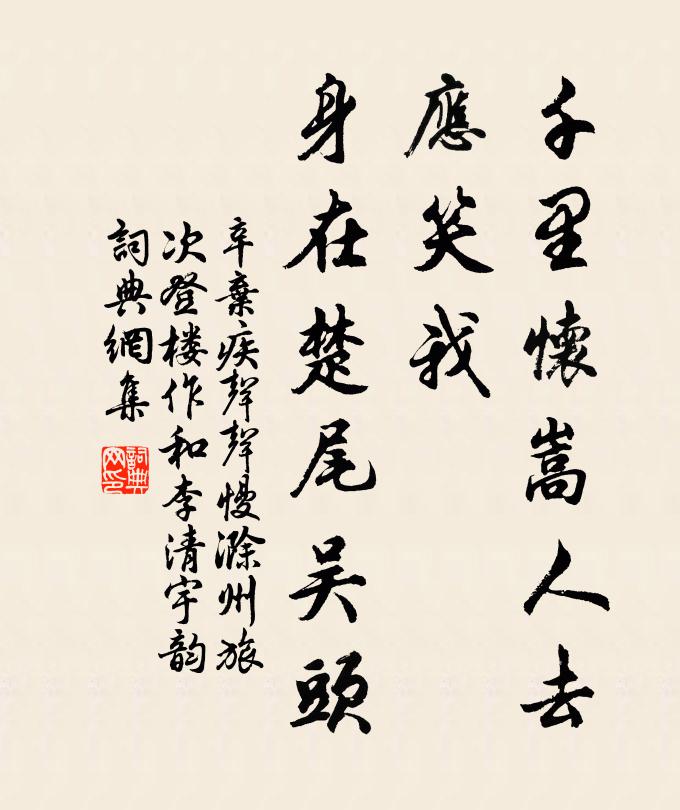 千里懷嵩人去
應笑我
身在楚尾吴頭
辛棄疾聲聲慢滁州旅
次登楼作和李清宇韵
詞典網集
詞典
网印